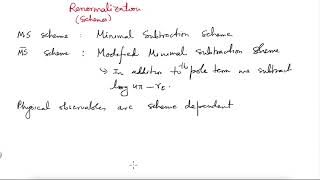 Renormalization
(Scheme)
MS scheme : Minimal Subtraction scheme
M̅S̅ scheme : Modefied Minimal subtraction Scheme
↳ In addition to the pole term we subtract
log 4π - γE.
Physical observables are scheme dependent